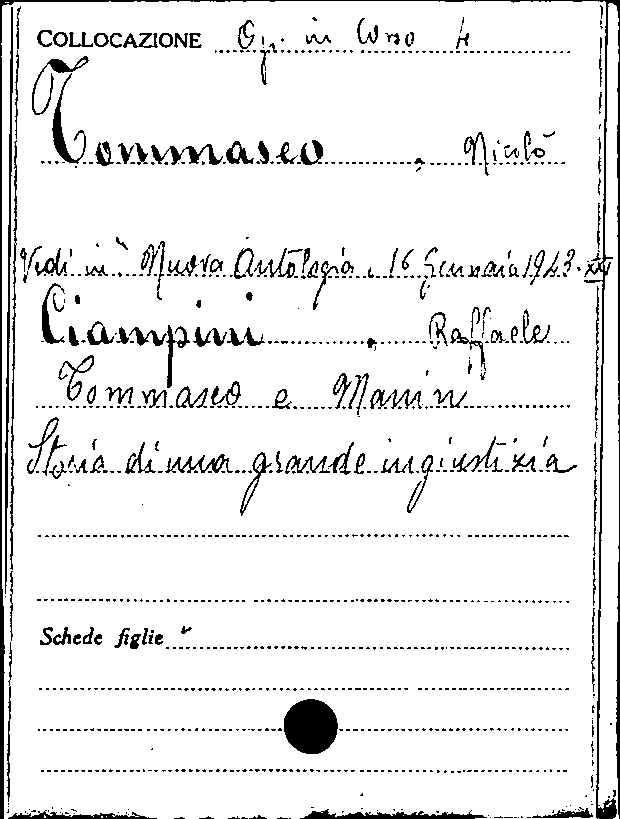 COLLOCAZIONE Op. in Corso 4
Tommaseo, Nicolò
Vedi in "Nuova Antologia. 16 Gennaio 1943. XXI
Ciampini, Raffaele
Tommaseo e Manin
Storia di una grande ingiustizia
Schede figlie